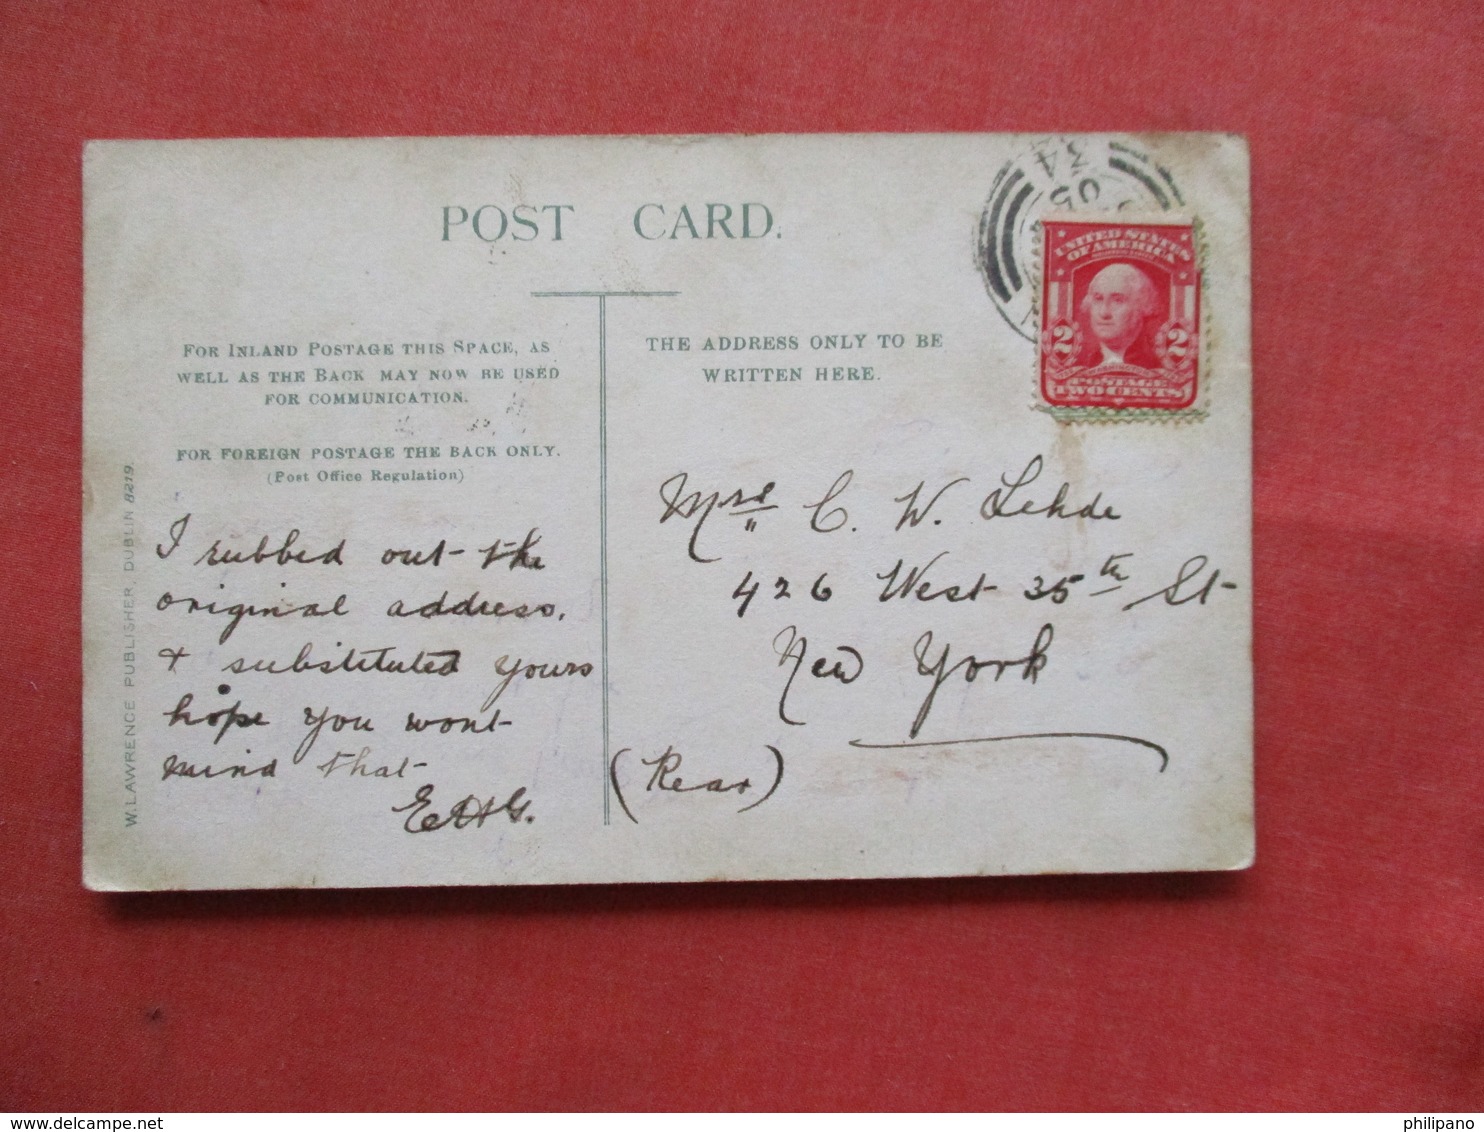 POST CARD.
FOR INLAND POSTAGE THIS SPACE, AS
WELL AS THE BACK MAY NOW BE USED
FOR COMMUNICATION.
FOR FOREIGN POSTAGE THE BACK ONLY.
(Post Office Regulation)
W. LAWRENCE PUBLISHER, DUBLIN 8219.
I rubbed out the
original address.
+ substituted yours
hope you wont
mind that
E.H.G.
THE ADDRESS ONLY TO BE
WRITTEN HERE.
05
34
UNITED STATES
OF AMERICA
2 2
POSTAGE
TWO CENTS
Mrs C. W. Lehde
426 West 35th St
New York
(Rear)
www.delcampe.net
philipano